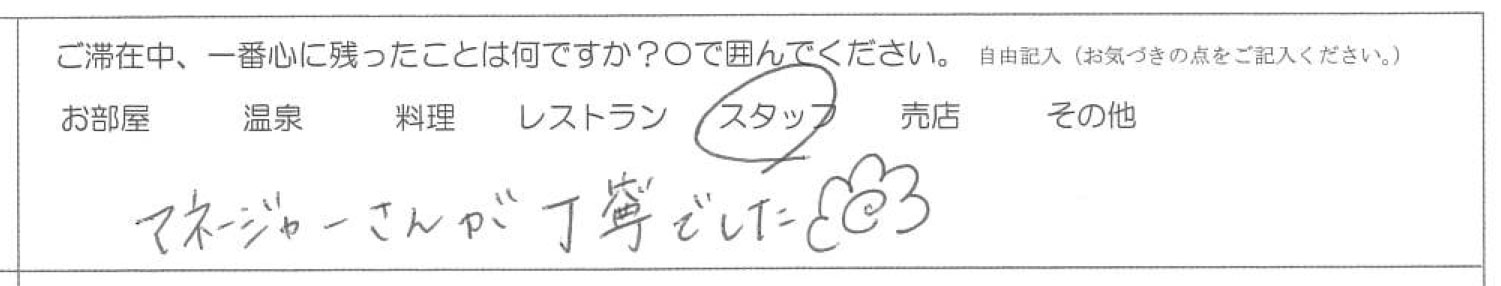 ご滞在中、一番心に残ったことは何ですか？○で囲んでください。 自由記入（お気づきの点をご記入ください。）
お部屋 温泉 料理 レストラン スタッフ 売店 その他
マネージャーさんが丁寧でした